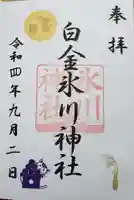 奉拝
白金氷川神社
氷川神社
令和四年九月二日